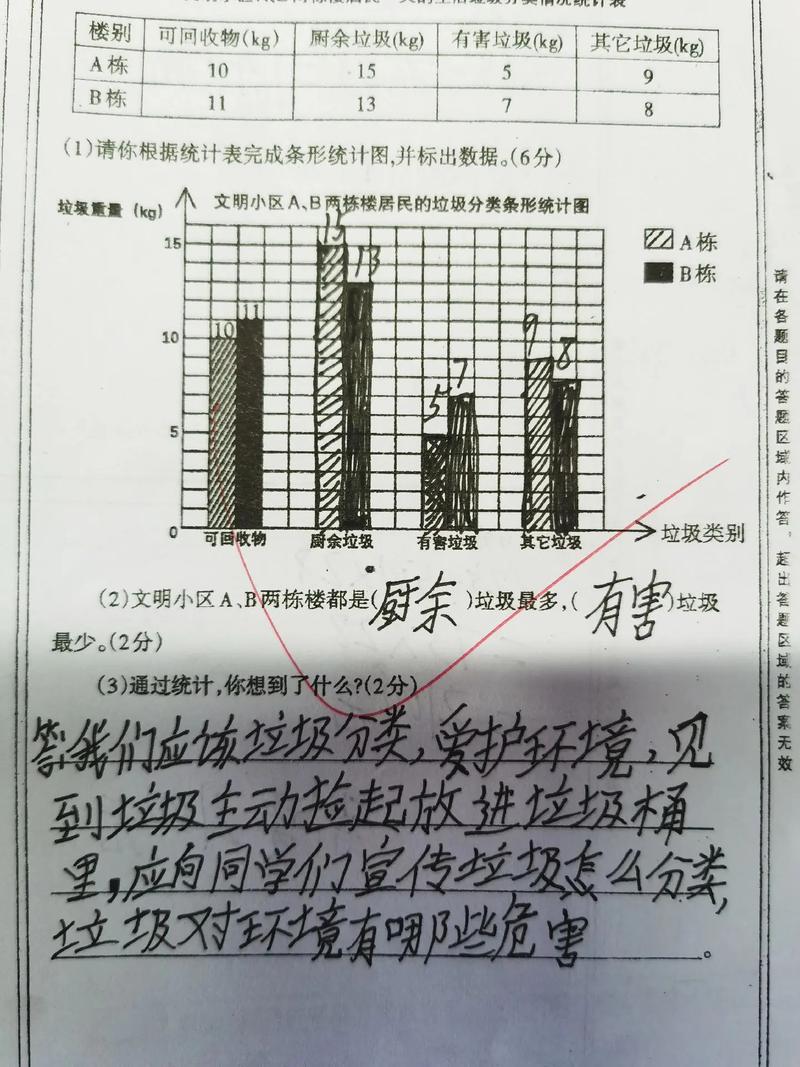 楼别 可回收物(kg) 厨余垃圾(kg) 有害垃圾(kg) 其它垃圾(kg)
A栋 10 15 5 9
B栋 11 13 7 8
(1)请你根据统计表完成条形统计图,并标出数据。(6分)
垃圾重量 (kg)
文明小区A、B两栋楼居民的垃圾分类条形统计图
A栋
B栋
15
10
5
0
10 11 15 13 5 7 9 8
可回收物 厨余垃圾 有害垃圾 其它垃圾 垃圾类别
(2)文明小区A、B两栋楼都是(厨余)垃圾最多,(有害)垃圾
最少。(2分)
(3)通过统计,你想到了什么?(2分)
答:我们应该垃圾分类,爱护环境,见
到垃圾主动捡起放进垃圾桶
里,应向同学们宣传垃圾怎么分类,
垃圾对环境有哪些危害。
请在各题目的答题区域内作答。超出答题区域的答案无效